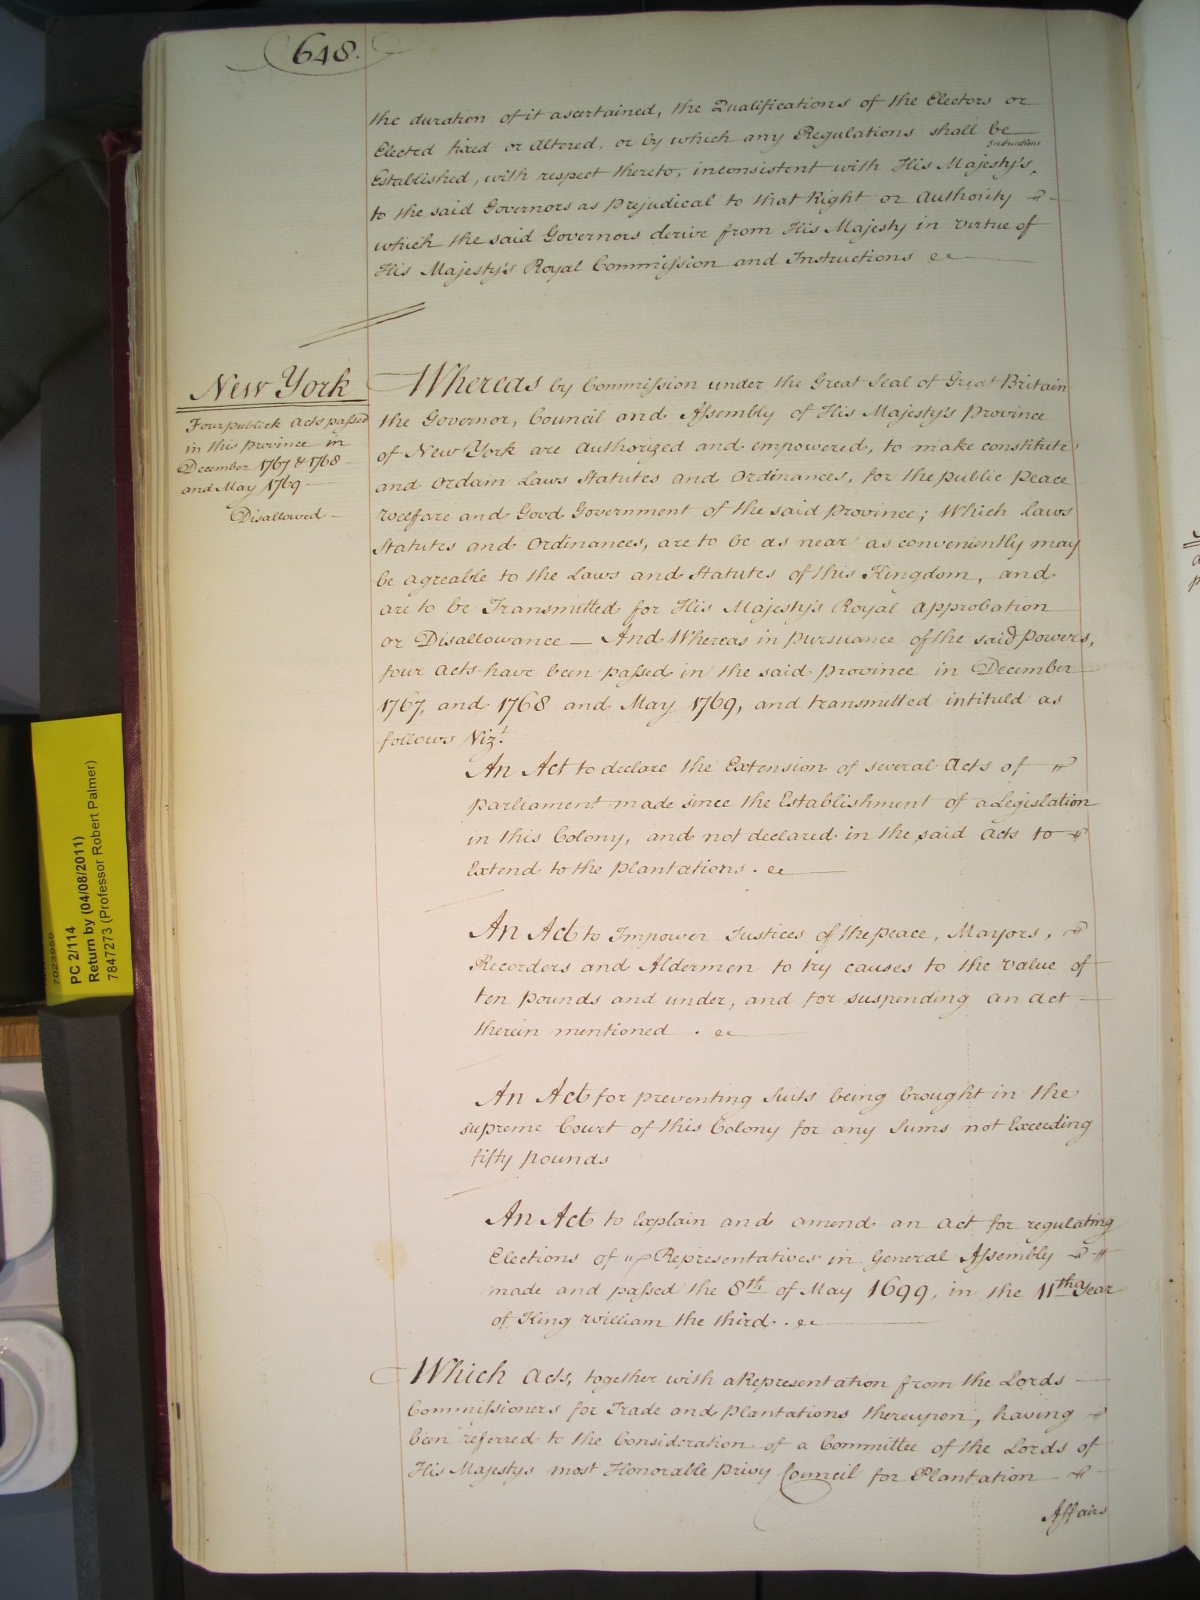 648.
the duration of it ascertained, the Qualifications of the Electors or
Elected fixed or altered, or by which any Regulations shall be
Established, with respect thereto, inconsistent with His Majesty's Instructions
to the said Governors as prejudical to that Right or Authority
which the said Governors derive from His Majesty in virtue of
His Majesty's Royal Commission and Instructions &c
New York
Four publick Acts passed
in this province in
December 1767 & 1768
and May 1769
Disallowed
Whereas by Commission under the Great Seal of Great Britain
the Governor, Council and Assembly of His Majesty's province
of New York are authorized and empowered, to make constitute
and ordain Laws Statutes and Ordinances, for the public peace
welfare and Good Government of the said province; Which Laws
Statutes and Ordinances, are to be as near as conveniently may
be agreable to the Laws and Statutes of this Kingdom, and
are to be Transmitted for His Majesty's Royal approbation
or Disallowance — And Whereas in pursuance of the said powers,
four acts have been passed in the said province in December
1767, and 1768 and May 1769, and transmitted intituld as
follows Vizt.
An Act to declare the Extension of several acts of
parliament made since the Establishment of a Legislation
in this Colony, and not declared in the said acts to
Extend to the plantations. &c
An Act to Impower Justices of the peace, Mayors,
Recorders and Aldermen to try causes to the value of
ten pounds and under, and for suspending an act
therein mentioned. &c
An Act for preventing suits being brought in the
supreme Court of this Colony for any sums not Exceeding
fifty pounds
An Act to Explain and amend an act for regulating
Elections of Representatives in General Assembly
made and passed the 8th of May 1699, in the 11th Year
of King William the third. &c
Which acts, together with a Representation from the Lords
Commissioners for Trade and plantations thereupon, having
been referred to the Consideration of a Committee of the Lords of
His Majestys most Honorable privy Council for Plantation
Affairs
PC 2/114
Return by (04/08/2011)
7847273 (Professor Robert Palmer)